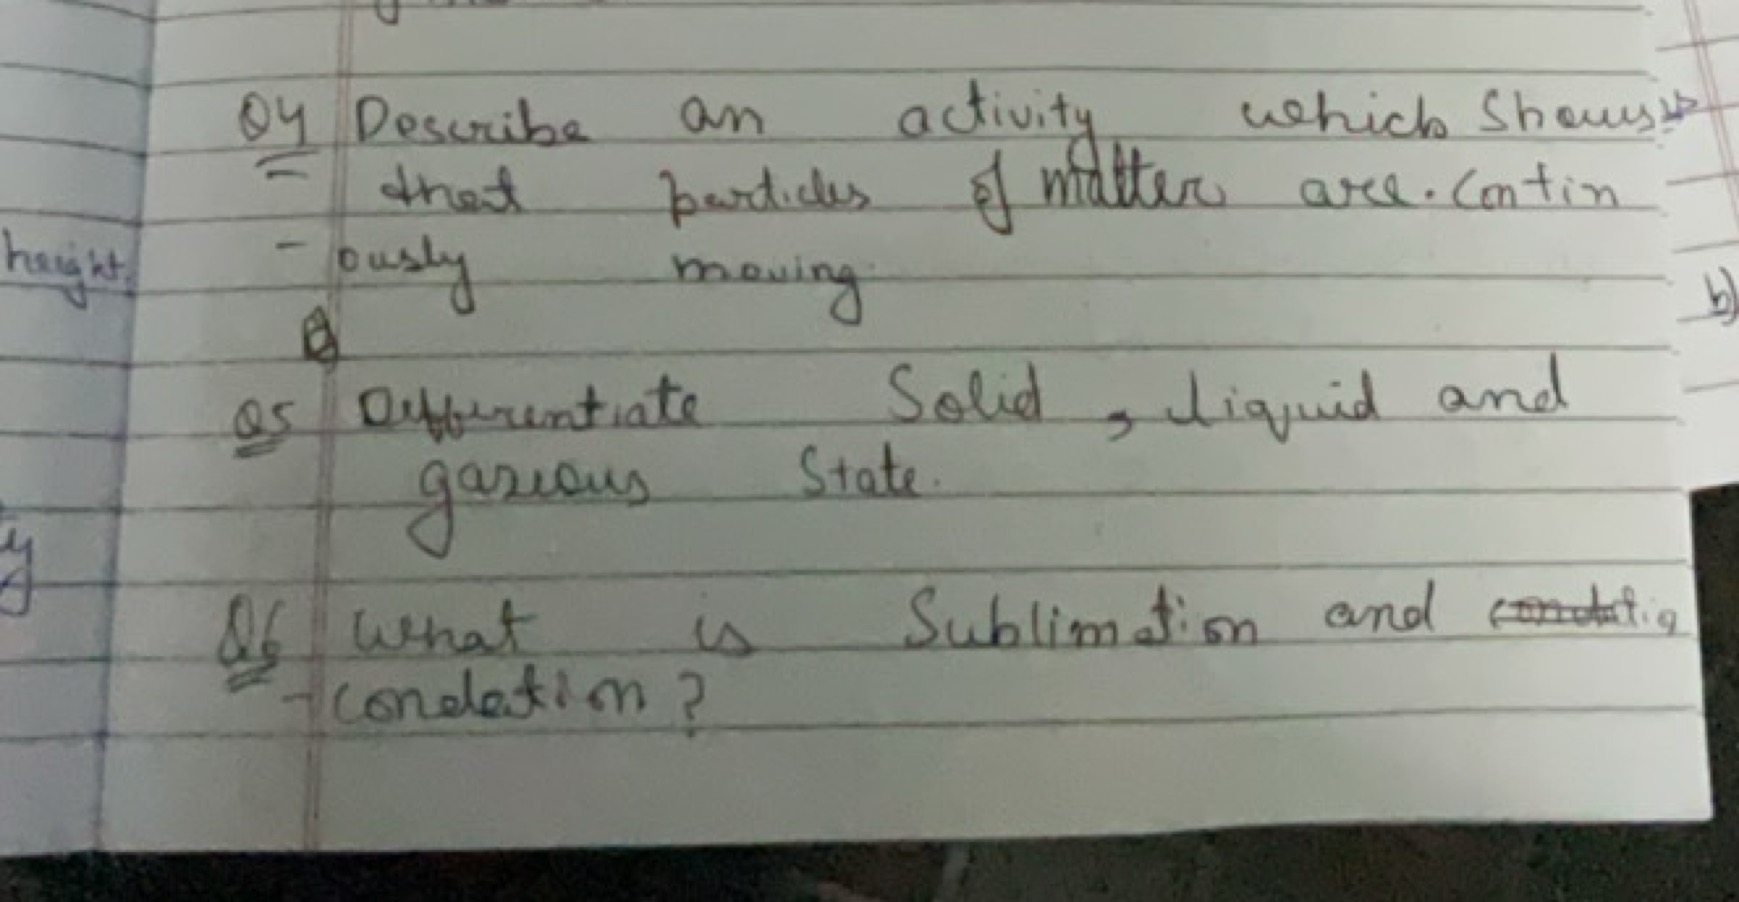 Q4 Describe an activity which Shows
that particles of matter are. Contin
- ously moving.
height.
b)
Q5 Differentiate Solid, liquid and
gaseous State.
y
Q6 What is Sublimation and
- condetion?